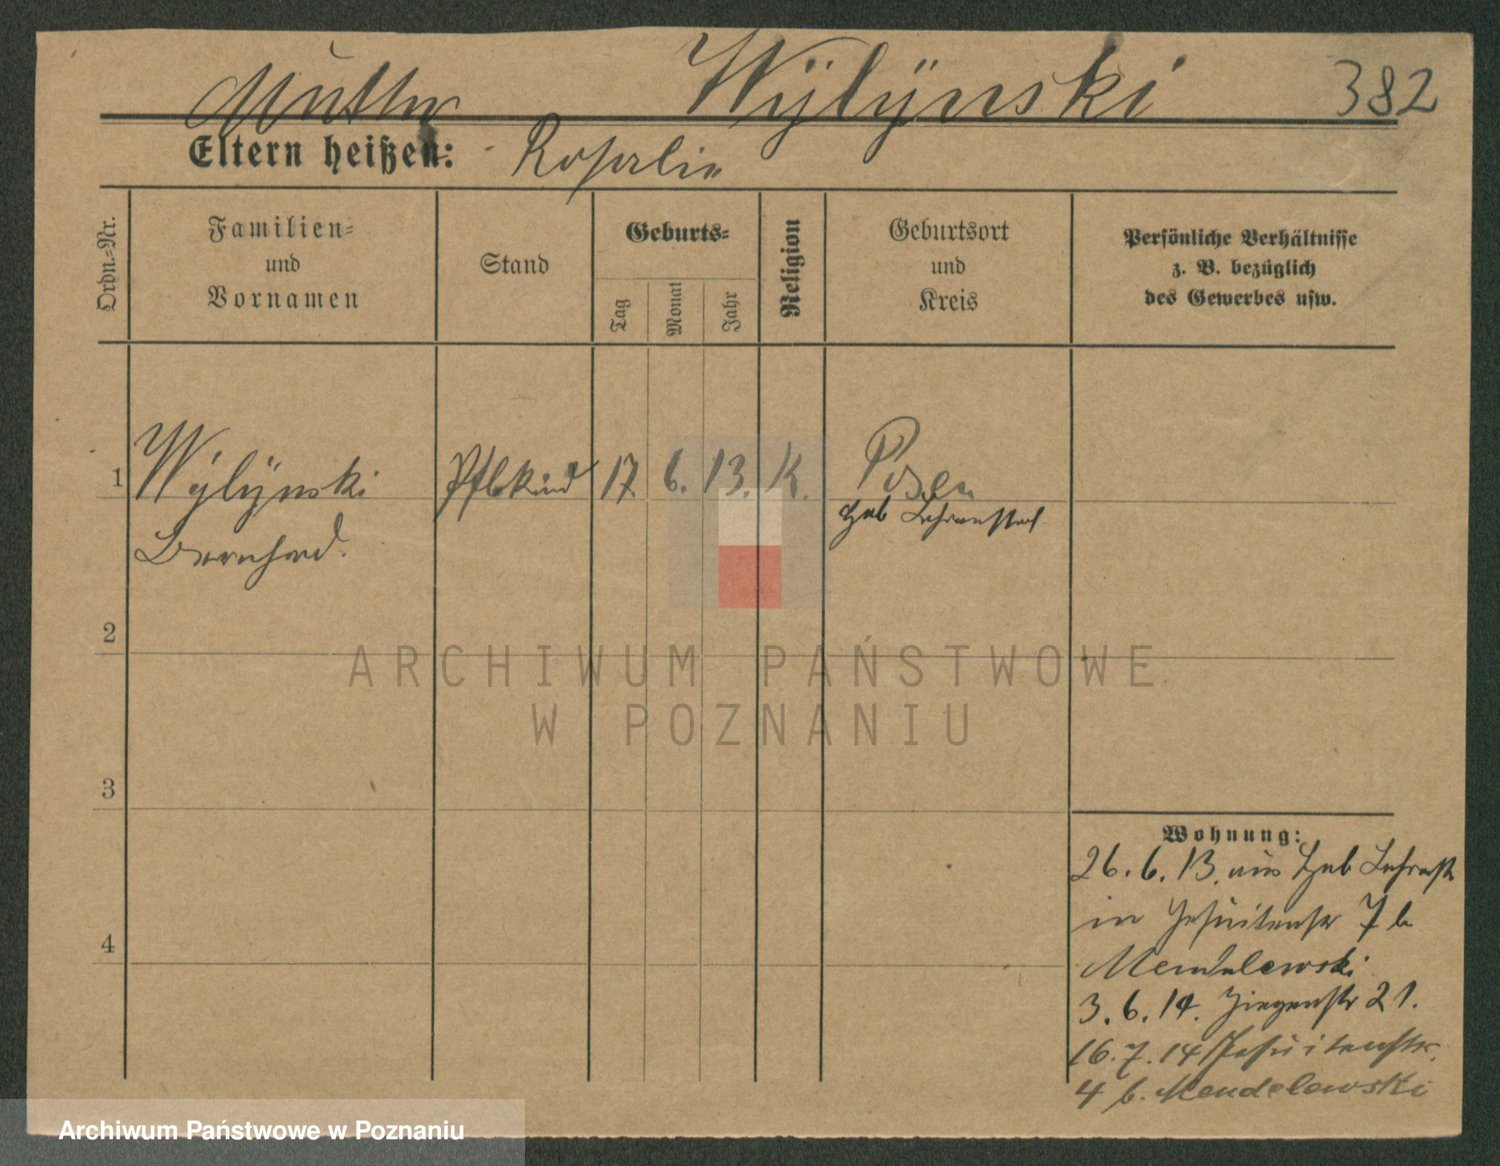 Mutter Wÿlÿnski 382
Eltern heißen: Rosalie
Ordn.-Nr.
Familien-
und
Vornamen
Stand
Geburts-
Tag
Monat
Jahr
Religion
Geburtsort
und
Kreis
Persönliche Verhältnisse
z. B. bezüglich
des Gewerbes usw.
1 Wÿlÿnski Pflkind 17. 6. 13. K. Posen
Heb Lehranstalt
Bernhard.
2
3
4
Wohnung:
26. 6. 13. aus Heb Lehranst
in Jesuitenstr 7 b
Mendelewski
3. 6. 14. Ziegenstr 21.
16. 7. 14 Jesuitenstr.
4 b. Mendelewski
ARCHIWUM PAŃSTWOWE
W POZNANIU
Archiwum Państwowe w Poznaniu